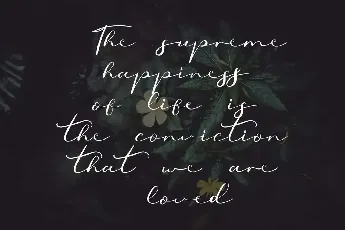 The supreme
happiness
of life is
the conviction
that we are
loved